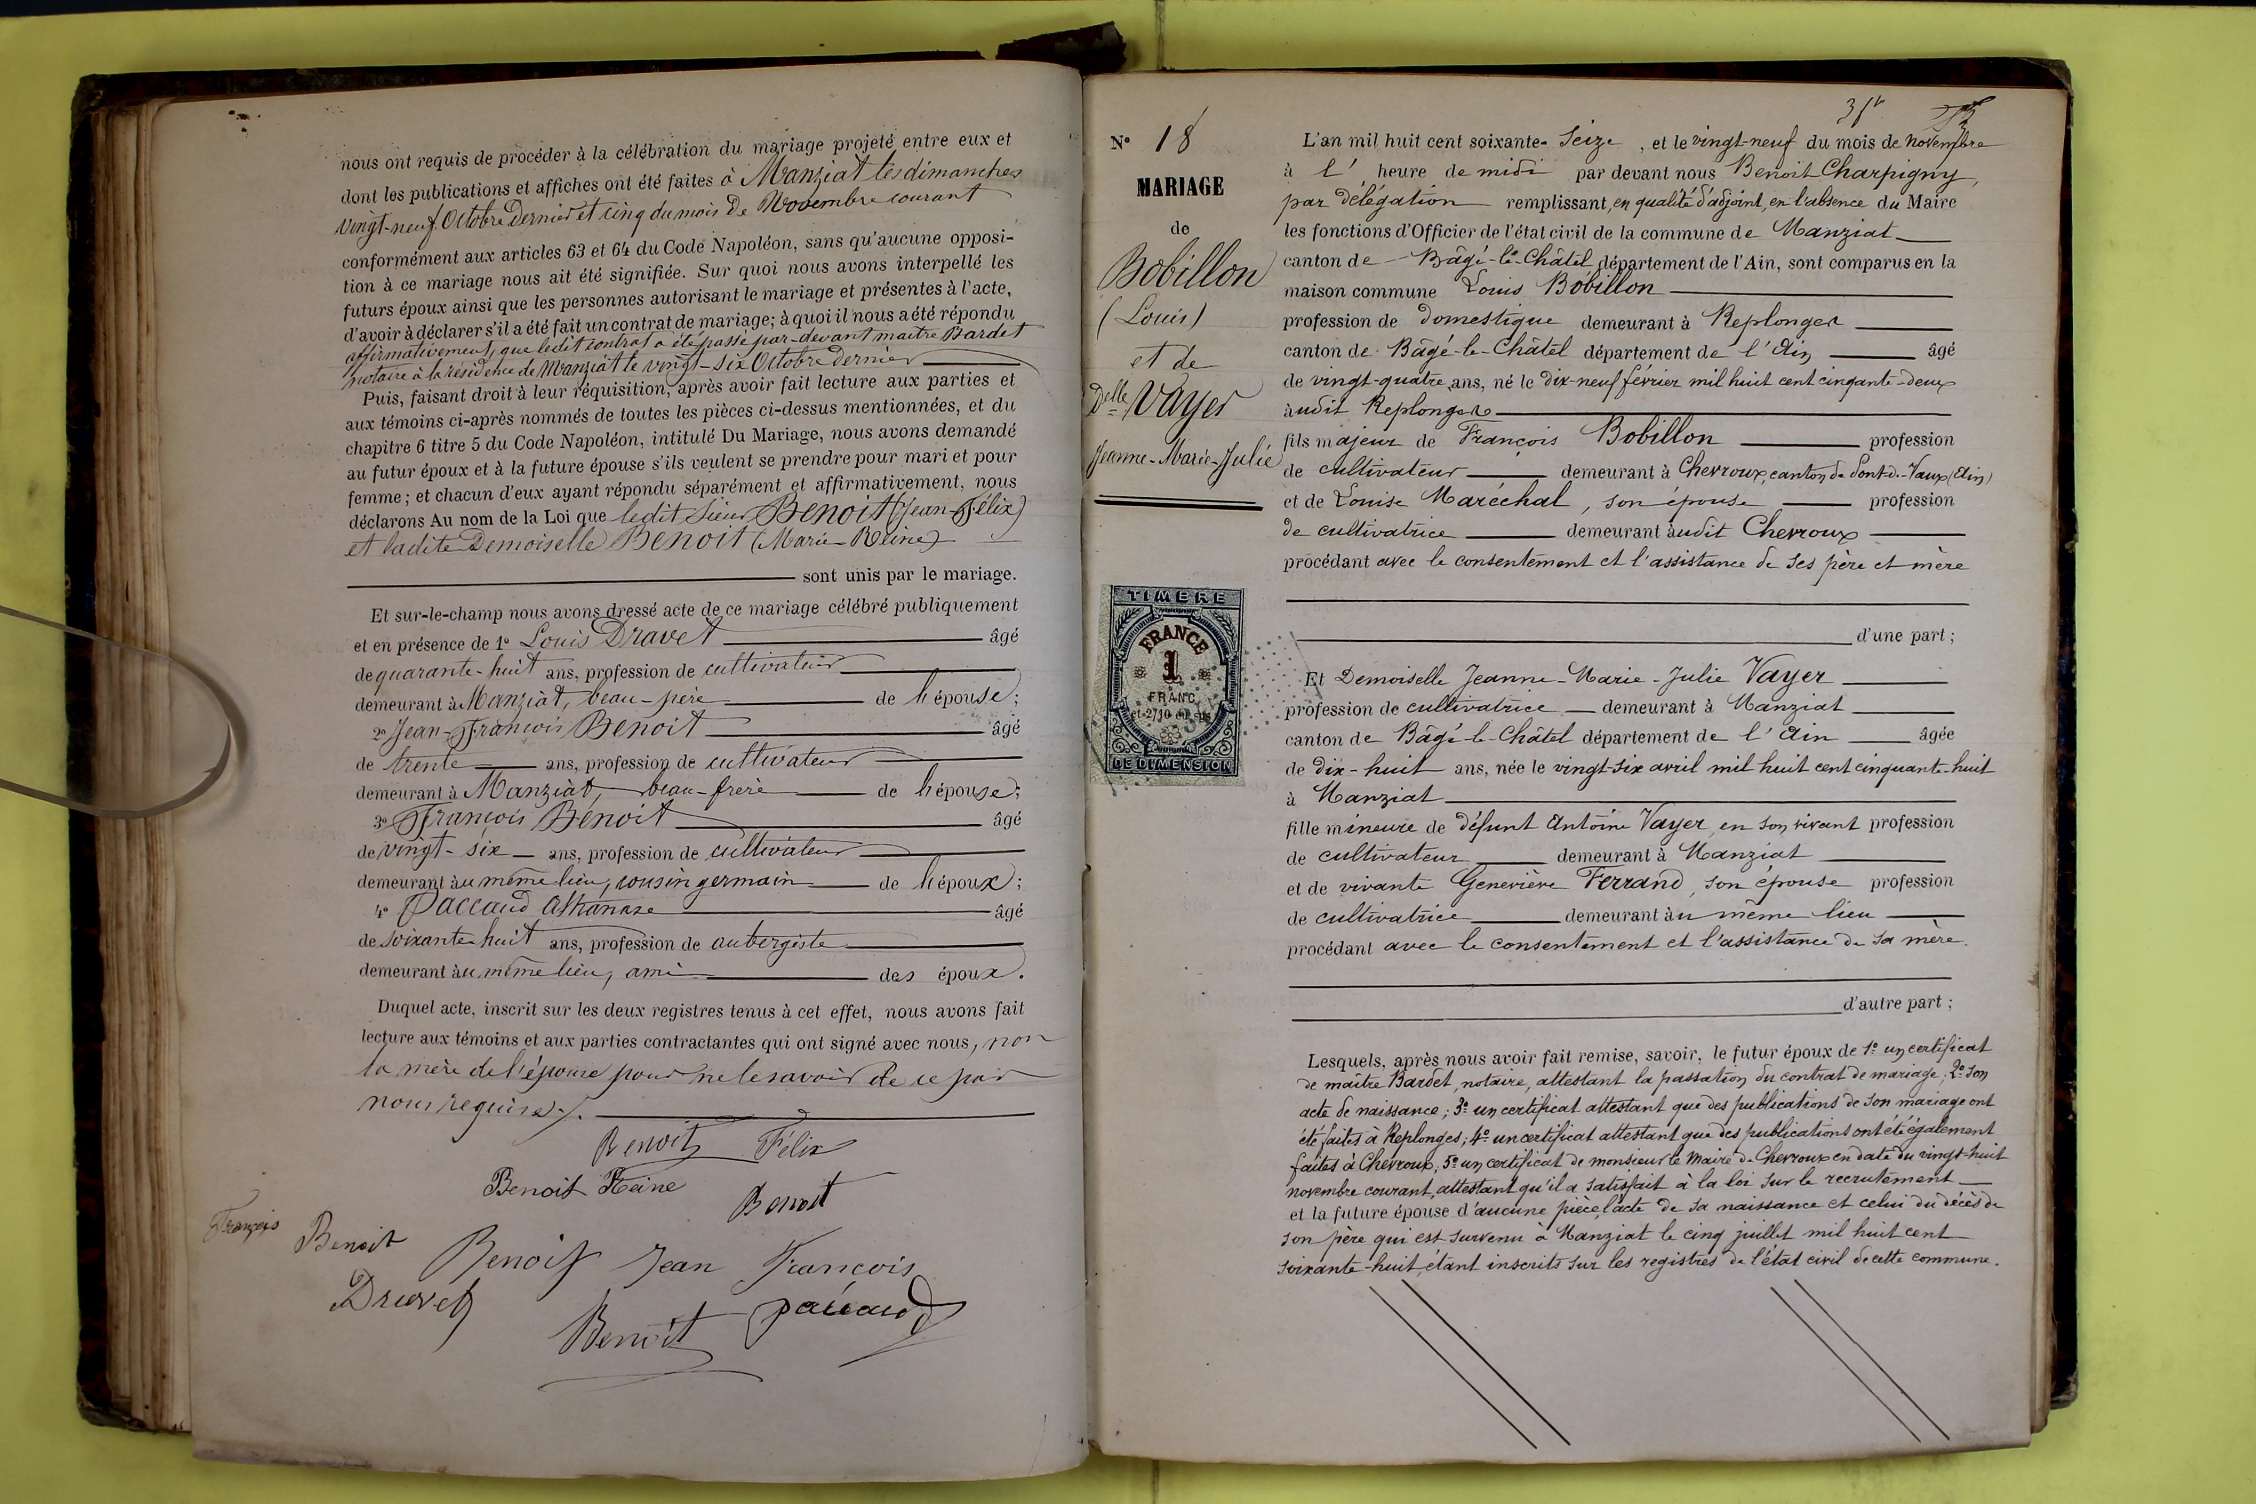 nous ont requis de procéder à la célébration du mariage projeté entre eux et
dont les publications et affiches ont été faites à Manziat les dimanches
vingt-neuf Octobre Dernier et cinq du mois de Novembre courant
conformément aux articles 63 et 64 du Code Napoléon, sans qu'aucune opposi-
tion à ce mariage nous ait été signifiée. Sur quoi nous avons interpellé les
futurs époux ainsi que les personnes autorisant le mariage et présentes à l'acte,
d'avoir à déclarer s'il a été fait un contrat de mariage; à quoi il nous a été répondu
affirmativement, que ledit contrat a été passé par-devant maître Bardet
notaire à la résidence de Manziat le vingt-six Octobre Dernier
Puis, faisant droit à leur réquisition, après avoir fait lecture aux parties et
aux témoins ci-après nommés de toutes les pièces ci-dessus mentionnées, et du
chapitre 6 titre 5 du Code Napoléon, intitulé Du Mariage, nous avons demandé
au futur époux et à la future épouse s'ils veulent se prendre pour mari et pour
femme; et chacun d'eux ayant répondu séparément et affirmativement, nous
déclarons Au nom de la Loi que ledit Sieur Benoit (Jean-Félix)
et ladite Demoiselle Benoit (Marie-Reine)
sont unis par le mariage.
Et sur-le-champ nous avons dressé acte de ce mariage célébré publiquement
et en présence de 1º Louis Dravet âgé
de quarante-huit ans, profession de cultivateur
demeurant à Manziat, beau-père de l'épouse;
2º Jean-François Benoit âgé
de trente ans, profession de cultivateur
demeurant à Manziat, beau-frère de l'épouse;
3º François Benoit âgé
de vingt-six ans, profession de cultivateur
demeurant au même lieu, cousin germain de l'époux;
4º Paccaud Athanase âgé
de soixante-huit ans, profession de aubergiste
demeurant au même lieu, ami des époux.
Duquel acte, inscrit sur les deux registres tenus à cet effet, nous avons fait
lecture aux témoins et aux parties contractantes qui ont signé avec nous, non
la mère de l'épouse pour ne le savoir de ce par
nous requise./.
Benoit Félix
Benoit Reine
Benoit
François Benoit
Benoit Jean François
Druvet
Benoit
paccaud
Nº 18
MARIAGE
de
Bobillon
(Louis)
et de
Delle Vayer
Jeanne-Marie-Julie
TIMBRE
FRANCE
1
FRANC
et 2/10 en sus
DE DIMENSION
L'an mil huit cent soixante-Seize, et le vingt-neuf du mois de novembre
à l' heure de midi par devant nous Benoit Charpigny,
par délégation remplissant, en qualité d'adjoint, en l'absence du Maire
les fonctions d'Officier de l'état civil de la commune de Manziat
canton de Bâgé-le-Châtel département de l'Ain, sont comparus en la
maison commune Louis Bobillon
profession de domestique demeurant à Replonges
canton de Bâgé-le-Châtel département de l'Ain âgé
de vingt-quatre ans, né le dix-neuf février mil huit cent cinquante-deux
à udit Replonges
fils majeur de François Bobillon profession
de cultivateur demeurant à Chevroux, canton de Pont-de-Vaux (Ain)
et de Louise Maréchal, son épouse profession
de cultivatrice demeurant àudit Chevroux
procédant avec le consentement et l'assistance de ses père et mère
d'une part;
Et Demoiselle Jeanne-Marie-Julie Vayer
profession de cultivatrice demeurant à Manziat
canton de Bâgé-le-Châtel département de l'Ain âgée
de dix-huit ans, née le vingt-six avril mil huit cent cinquante-huit
à Manziat
fille mineure de défunt Antoine Vayer, en son vivant profession
de cultivateur demeurant à Manziat
et de vivante Geneviève Ferrand, son épouse profession
de cultivatrice demeurant àu même lieu
procédant avec le consentement et l'assistance de sa mère.
d'autre part;
Lesquels, après nous avoir fait remise, savoir, le futur époux de 1º un certificat
de maître Bardet, notaire, attestant la passation du contrat de mariage; 2º son
acte de naissance; 3º un certificat attestant que des publications de son mariage ont
été faites à Replonges; 4º un certificat attestant que des publications ont été également
faites à Chevroux; 5º un certificat de monsieur le Maire de Chevroux en date du vingt-huit
novembre courant, attestant qu'il a satisfait à la loi sur le recrutement
et la future épouse d'aucune pièce, l'acte de sa naissance et celui du décès de
son père qui est survenu à Manziat le cinq juillet mil huit cent
soixante-huit, étant inscrits sur les registres de l'état civil de cette commune.